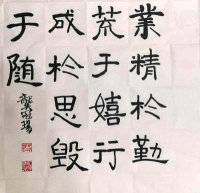 業精於勤
荒于嬉行
成於思毀
于隨